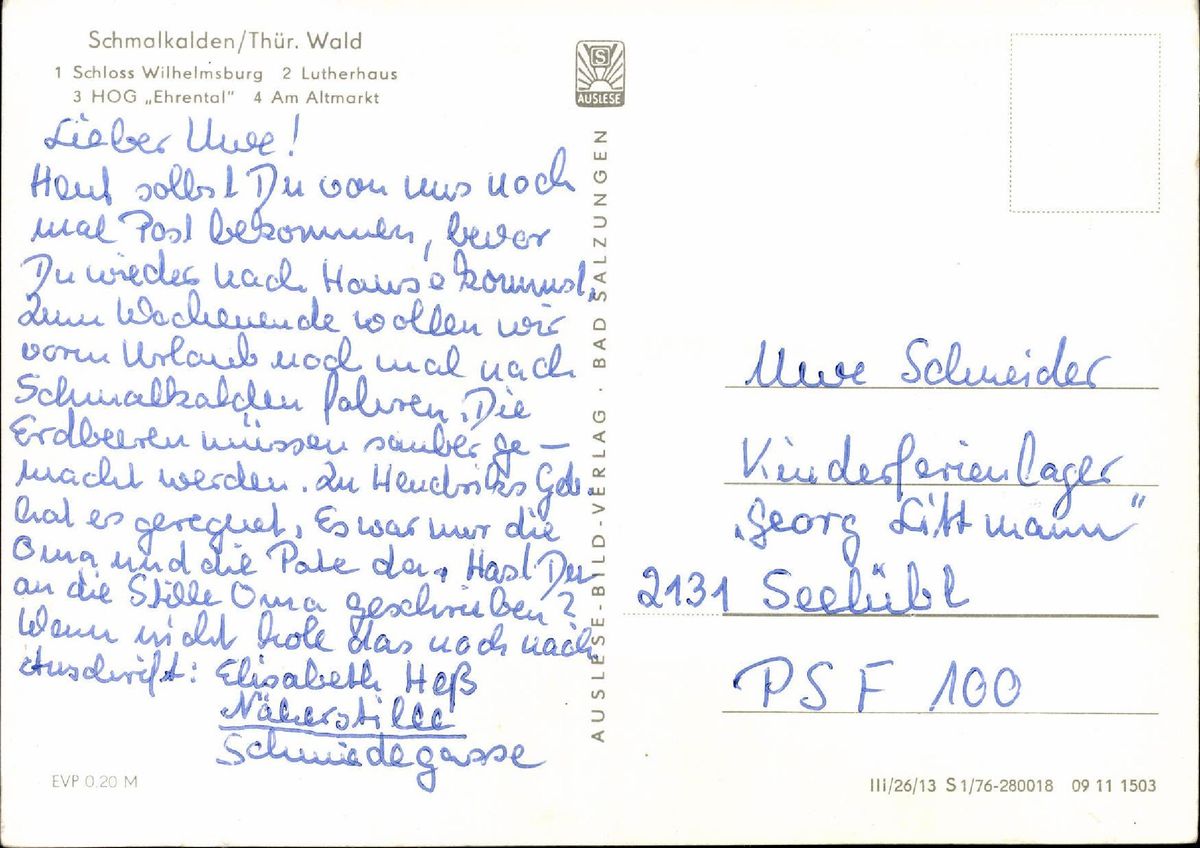 Schmalkalden/Thür. Wald
1 Schloss Wilhelmsburg 2 Lutherhaus
3 HOG „Ehrental" 4 Am Altmarkt
Lieber Uwe!
Heut sollst Du von uns noch
mal Post bekommen, bevor
Du wieder nach Hause kommst.
Zum Wochenende wollen wir
vorm Urlaub noch mal nach
Schmalkalden fahren. Die
Erdbeeren müssen sauber ge-
macht werden. Zu Hendriks Geb.
hat es geregnet. Es war nur die
Oma und die Pate da. Hast Du
an die Stille Oma geschrieben?
Wenn nicht hole das noch nach.
Anschrift: Elisabeth Heß
Näherstille
Schmiedegasse
EVP 0.20 M
S
AUSLESE
AUSLESE-BILD-VERLAG · BAD SALZUNGEN
Uwe Schneider
Kinderferienlager
„Georg Littmann"
2131 Seelübbe
PSF 100
III/26/13 S 1/76-280018 09 11 1503